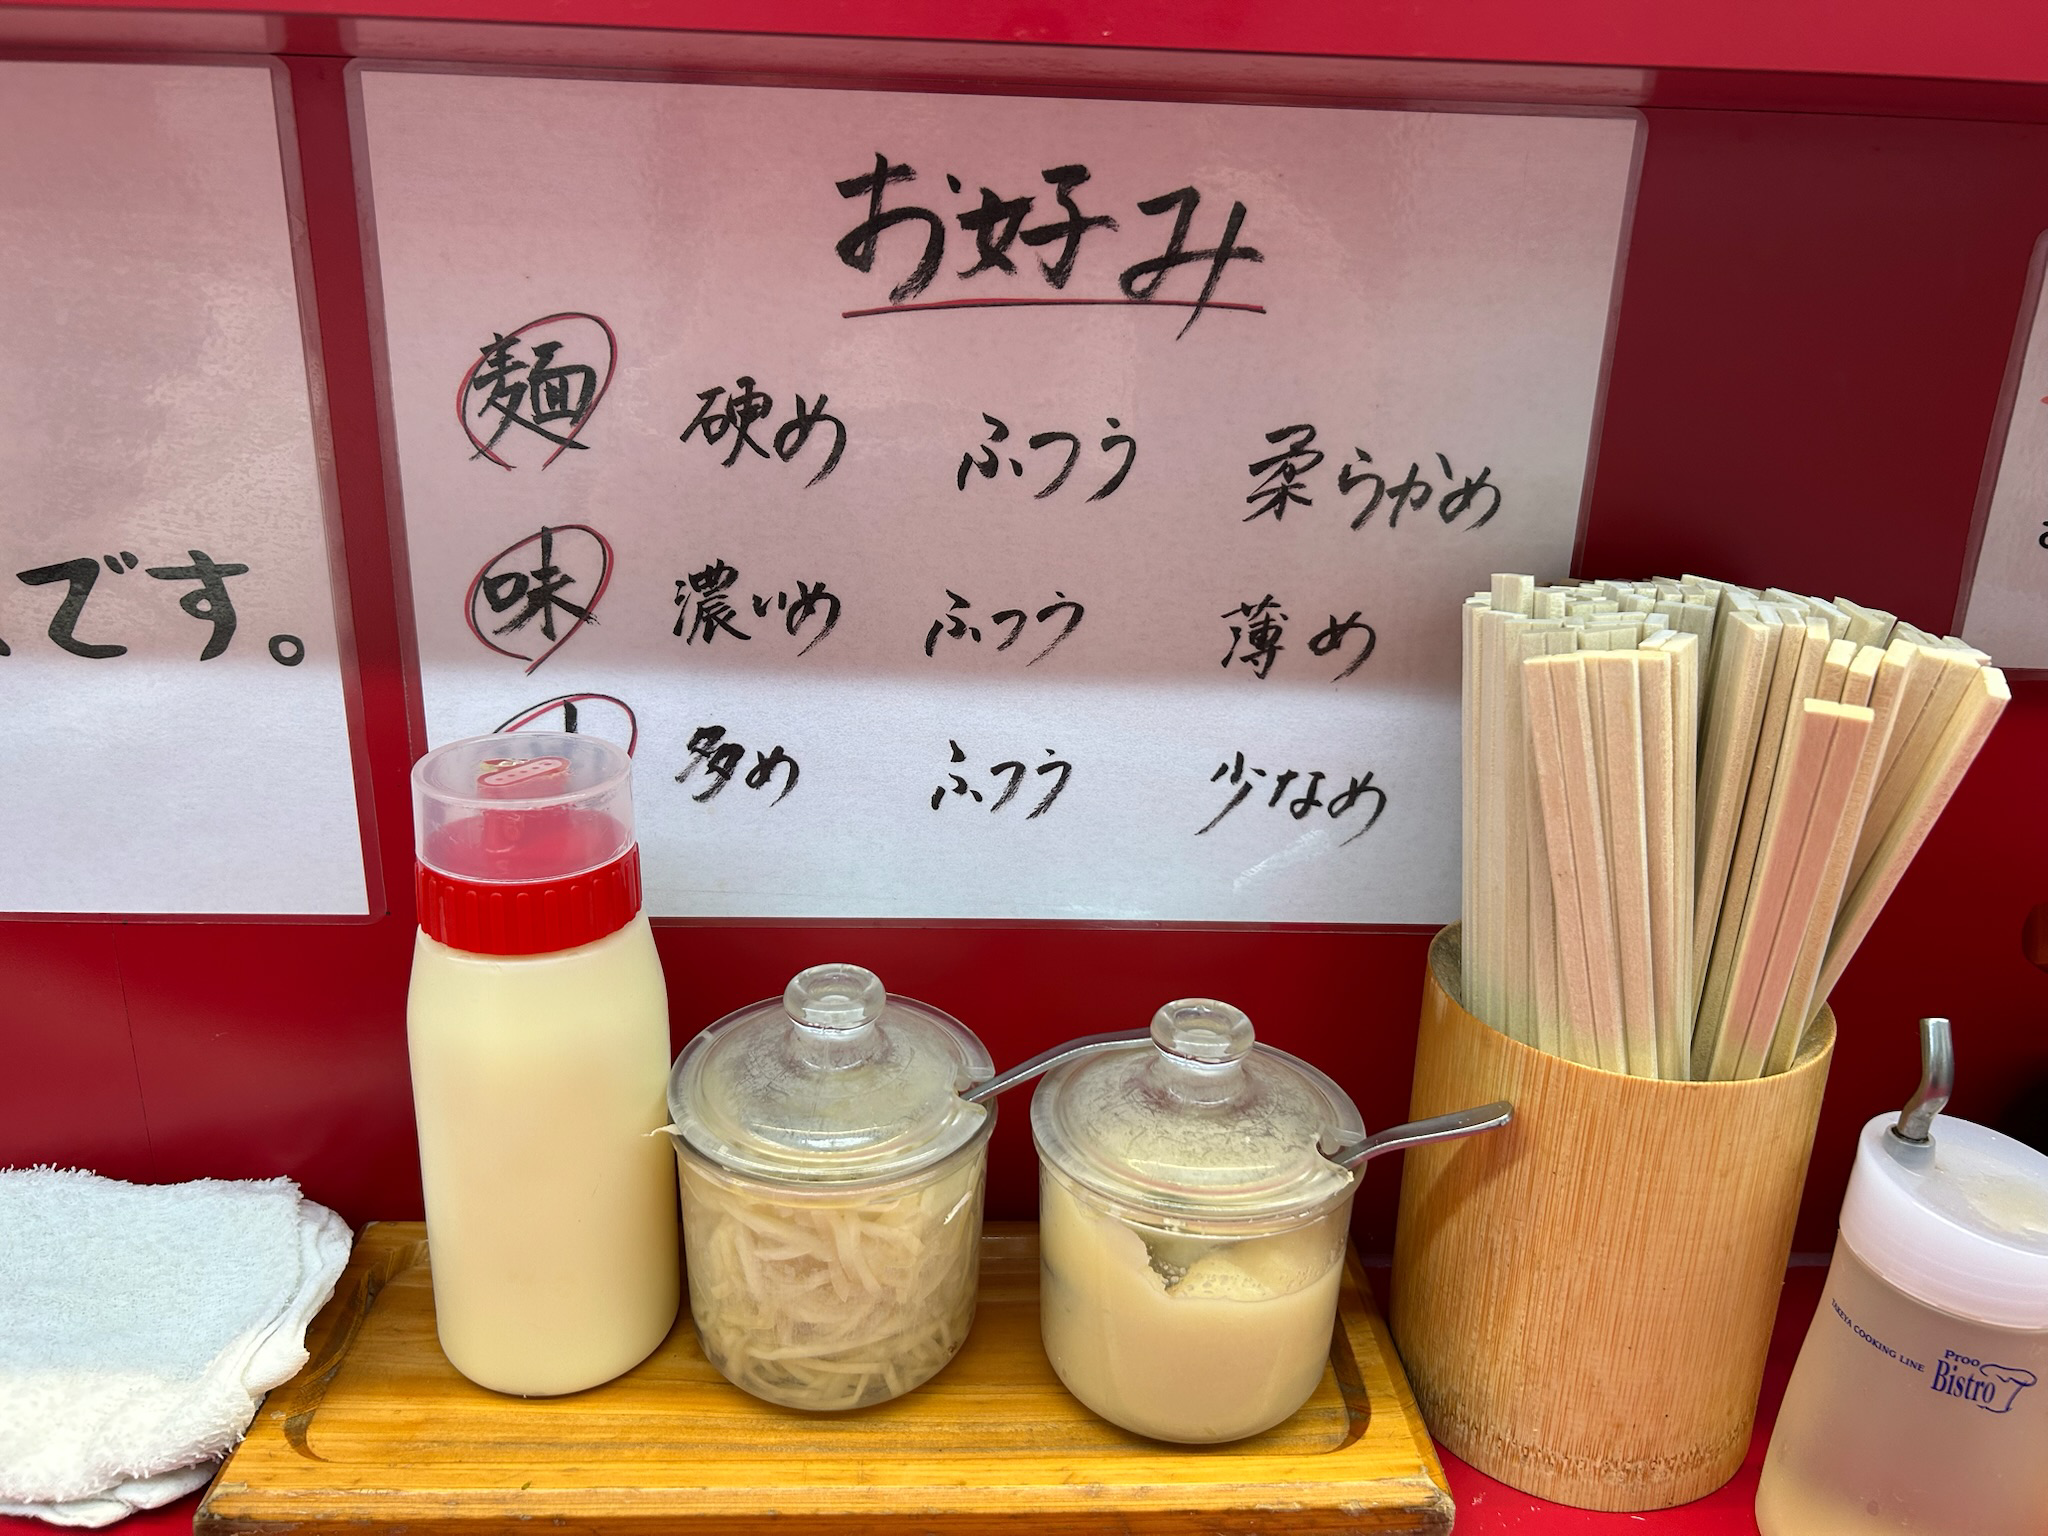 お好み
麺 硬め ふつう 柔らかめ
味 濃いめ ふつう 薄め
多め ふつう 少なめ
です。
TAKEYA COOKING LINE
Proo
Bistro